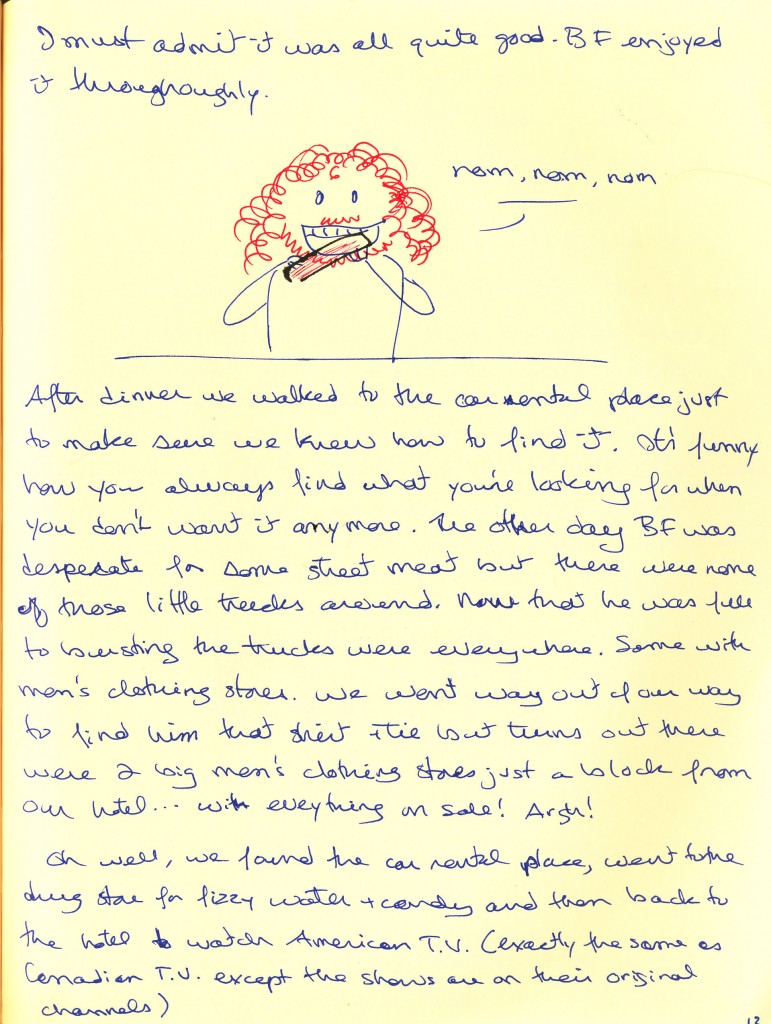 I must admit it was all quite good. BF enjoyed
it throughoughly.
nom, nom, nom
After dinner we walked to the car rental place just
to make sure we knew how to find it. It's funny
how you always find what you're looking for when
you don't want it any more. The other day BF was
desperate for some street meat but there were none
of those little trucks around. Now that he was full
to bursting the trucks were everywhere. Same with
men's clothing stores. We went way out of our way
to find him that shirt + tie but turns out there
were 2 big men's clothing stores just a block from
our hotel... with eveything on sale! Argh!
Oh well, we found the car rental place, went to the
drug store for fizzy water + candy and then back to
the hotel to watch American T.V. (exactly the same as
Canadian T.V. except the shows are on their original
channels)